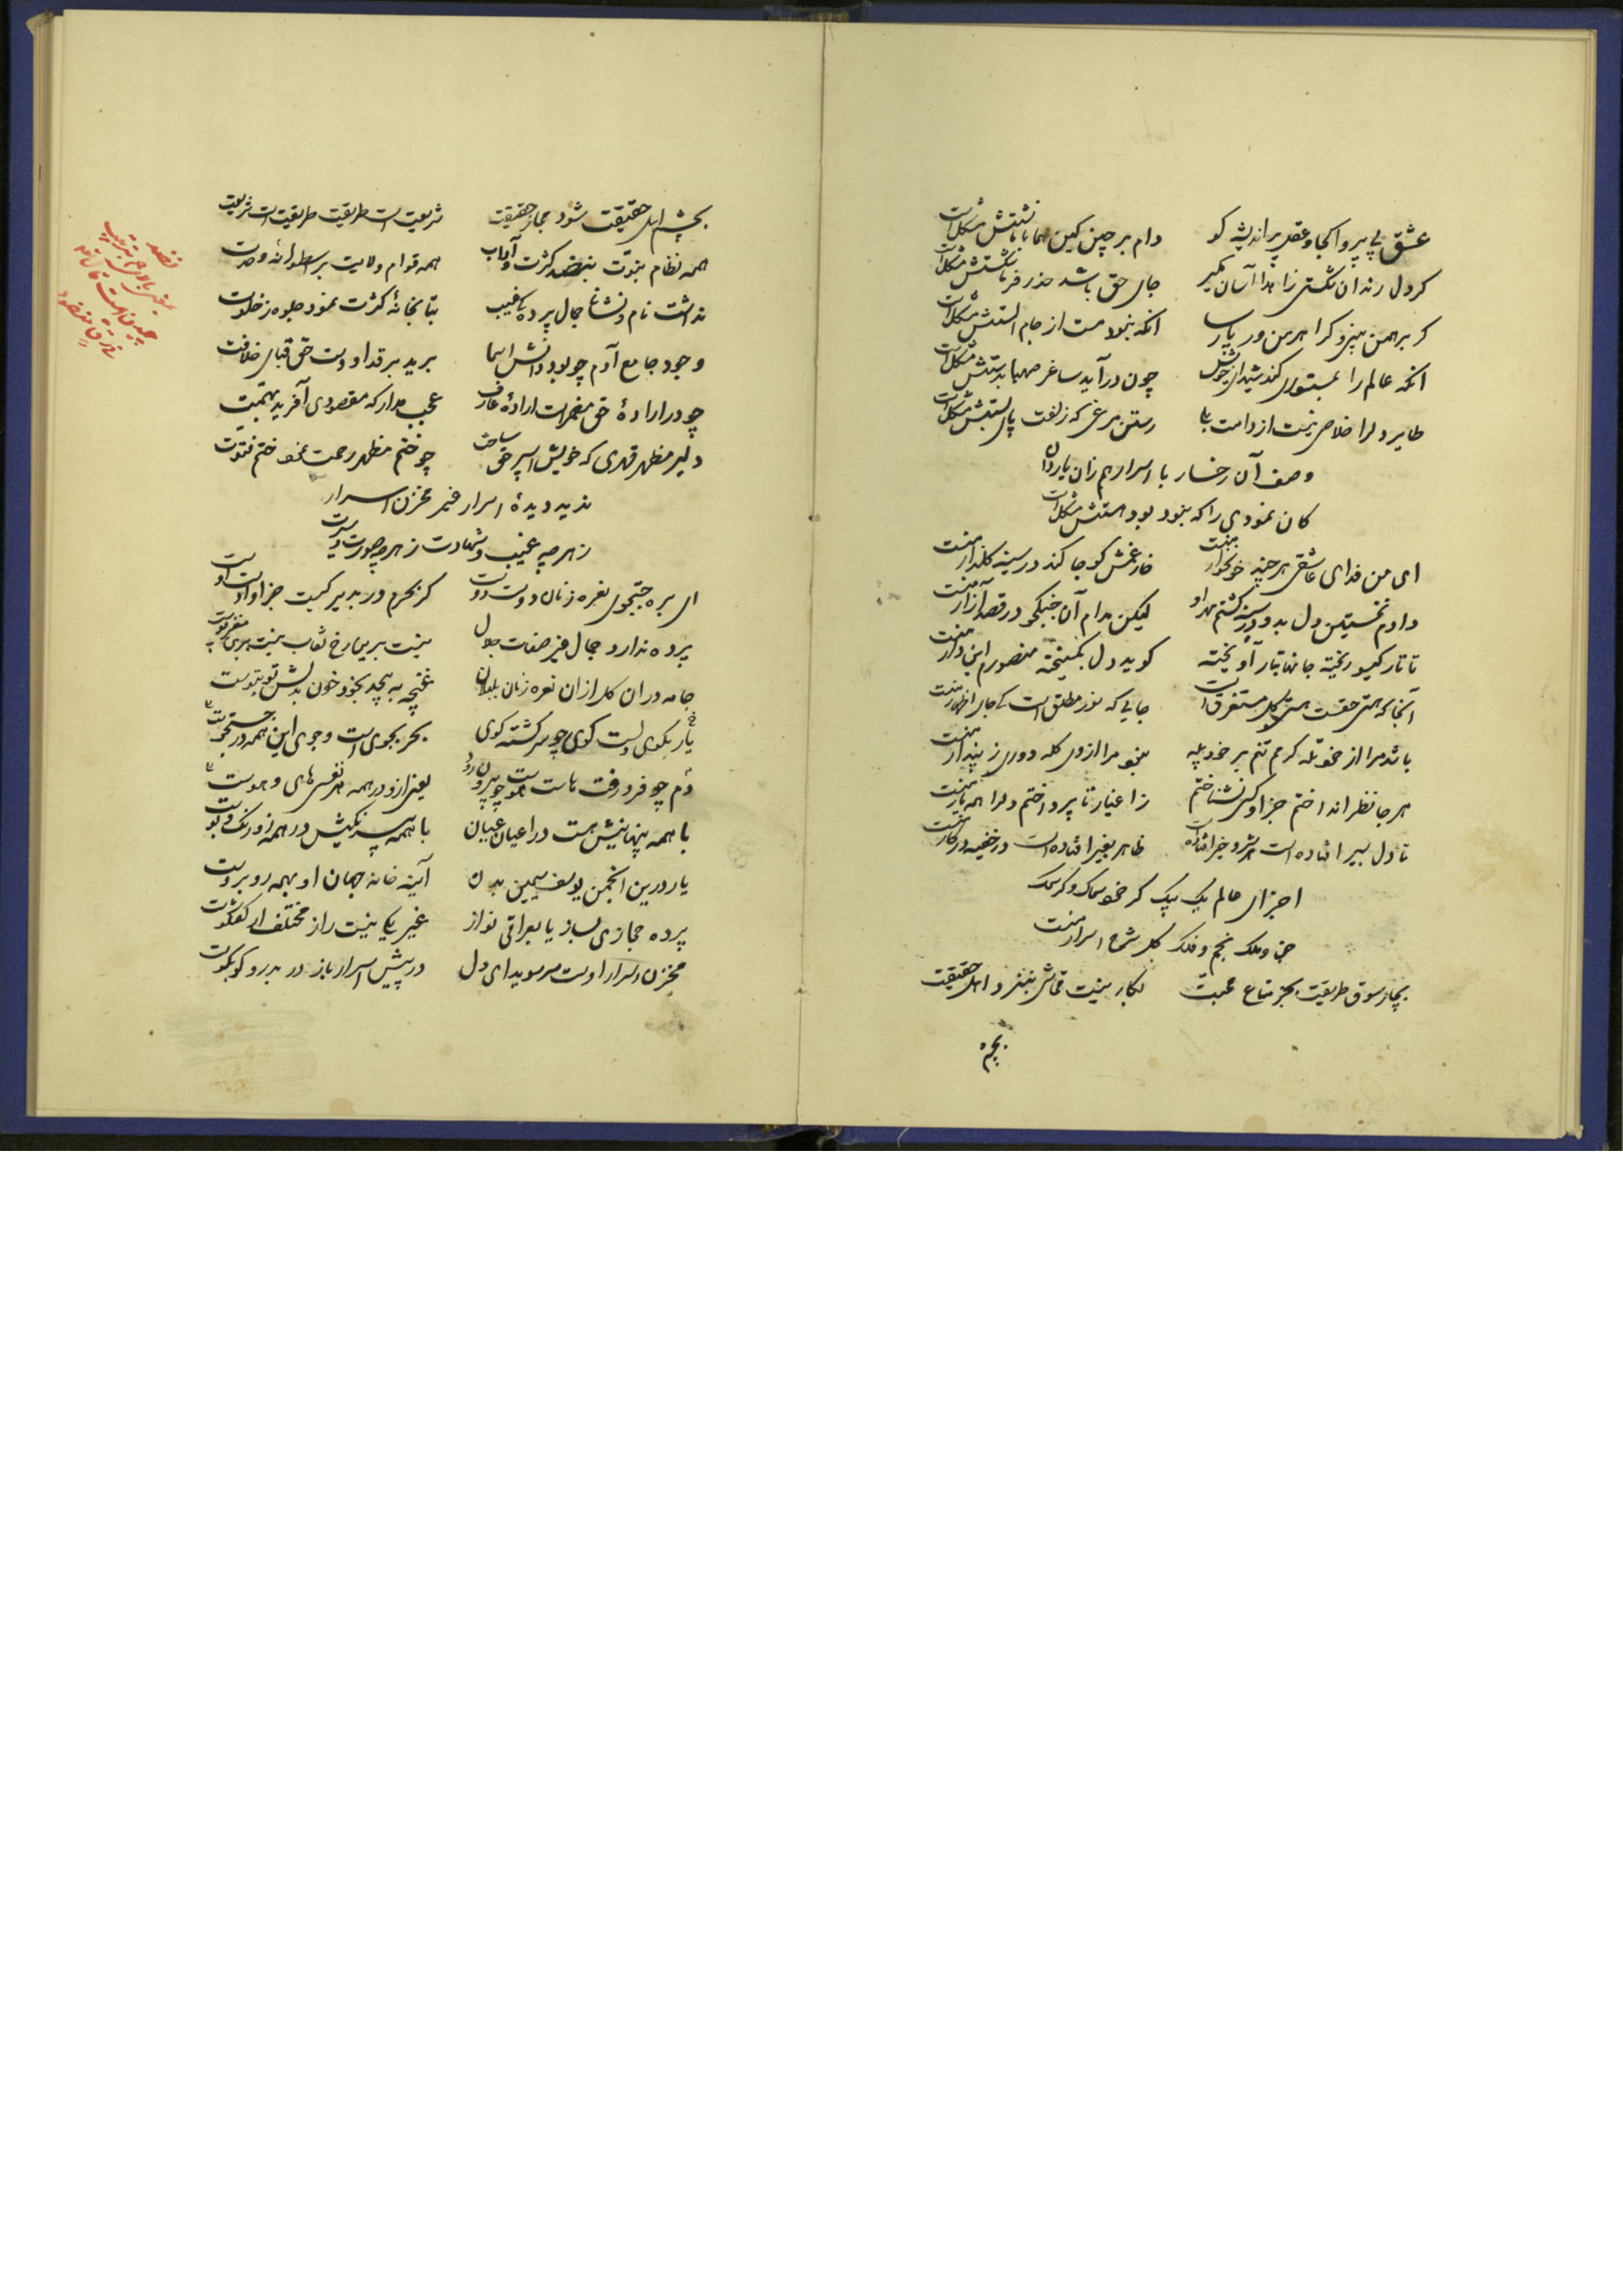 عشق بی پروا کجا و عقل پر اندیشه کو	دام برچین کین هما با ما نشستش مشکل است
کر دل رندان شکستی زاهدا آسان مگیر	جای حق باشد حذر فرما شکستش مشکل است
کر برهمن بینی و کر اهرمن ور پارسا	آنکه نبود مست از جام الستش مشکل است
آنکه عالم را بمستوری کند شیدای خویش	چون درآید ساغر صهبا بدستش مشکل است
طایر دلرا خلاصی نیست از دامت بلی	رستن مرغی که زلفت پای بستش مشکل است
وصف آن رخسار با اسرار هم زان یار دان
کان نمودی را که نبود بود هستش مشکل است
ای من فدای عاشقی هرچند خونخوار منست	خار غمش کو جا کند در سینه گلزار منست
دادم نخستین دل بدو در سینه کشتم مهر او	لیکن مدام آن جنگجو در قصد آزار منست
تا تار کیسو ریخته جانها بتار آویخته	کوید دل بگسیخته منصورم این دار منست
آنجا که هستی حقست هستی کل مستغرق است	جایی که نور مطلق است کی جای اظهار منست
باشد مرا از خود گله کرمم تنم بر خود پیله	نبود مرا از وی گله دوری ز پندار منست
هر جا نظر انداختم جز او کسی نشناختم	ز اغیار تا پرداختم دلرا همه یار منست
تا دل بسیر افتاده است هر شر و خیر افتاده است	ظاهر بغیر افتاده است در خفیه در کار منست
اجزای عالم یک بیک کر خود سماک و کر سمک
جن و ملک نجم و فلک کل شرح اسرار منست
بچار سوق طریقت بجز متاع محبت	بکار نیست قماشی بنزد اهل حقیقت
بچشم
بچشم اهل حقیقت شود مجاز حقیقت	شریعت است طریقت طریقت است شریعت
همه نظام نبوت بنضد کثرت و آداب	همه قوام ولایت بر اسطوانه وحدت
نداشت نام و نشانی جمال پردگی غیب	بتابخانه کثرت نمود جلوه ز خلوت
وجود جامع آدم چو بود دانش اسما	برید بر قد او دست حق قبای خلافت
چو در اراده حق مضمر است اراده عارف	عجب مدار که مقصودی آفرید بهمت
دلیر مظهر قهری که خویش اسپر حق ساخت	چو ختم مظهر رحمت نمود ختم فتوت
ندید دیدهٔ اسرار غیر مخزن اسرار
ز هر چه غیب و شهادت ز هر چه صورت و سیرت
ای بره جستجوی نعره زنان دوست دوست	کر بحرم ور بدیر کیست جز او اوست اوست
پرده ندارد جمال غیر صفات جلال	نیست بر این رخ نقاب نیست بر این مغز پوست
جامه دران گل ازان نعره زنان بلبلان	غنچه به پیچد بخود خون بدلش تو بتوست
یار بکوی دلست کوی چو سرگشته گوی	بحر بجوی است و جوی این همه در جستجوست
دم چو فرو رفت هاست هوست چو بیرون رود	یعنی ازو در همه هر نفسی های و هوست
با همه پنهانیش هست در اعیان عیان	با همه بیرنگیش در همه زو رنگ و بوست
یار درین انجمن یوسف سیمین بدن	آینه خانه جهان او بهمه روبروست
پرده حجازی بساز یا بعراقی نواز	غیر یکی نیست راز مختلف ار گفتگوست
مخزن اسرار اوست سر سویدای دل	در پیش اسرار باز در بدر و کو بکوست